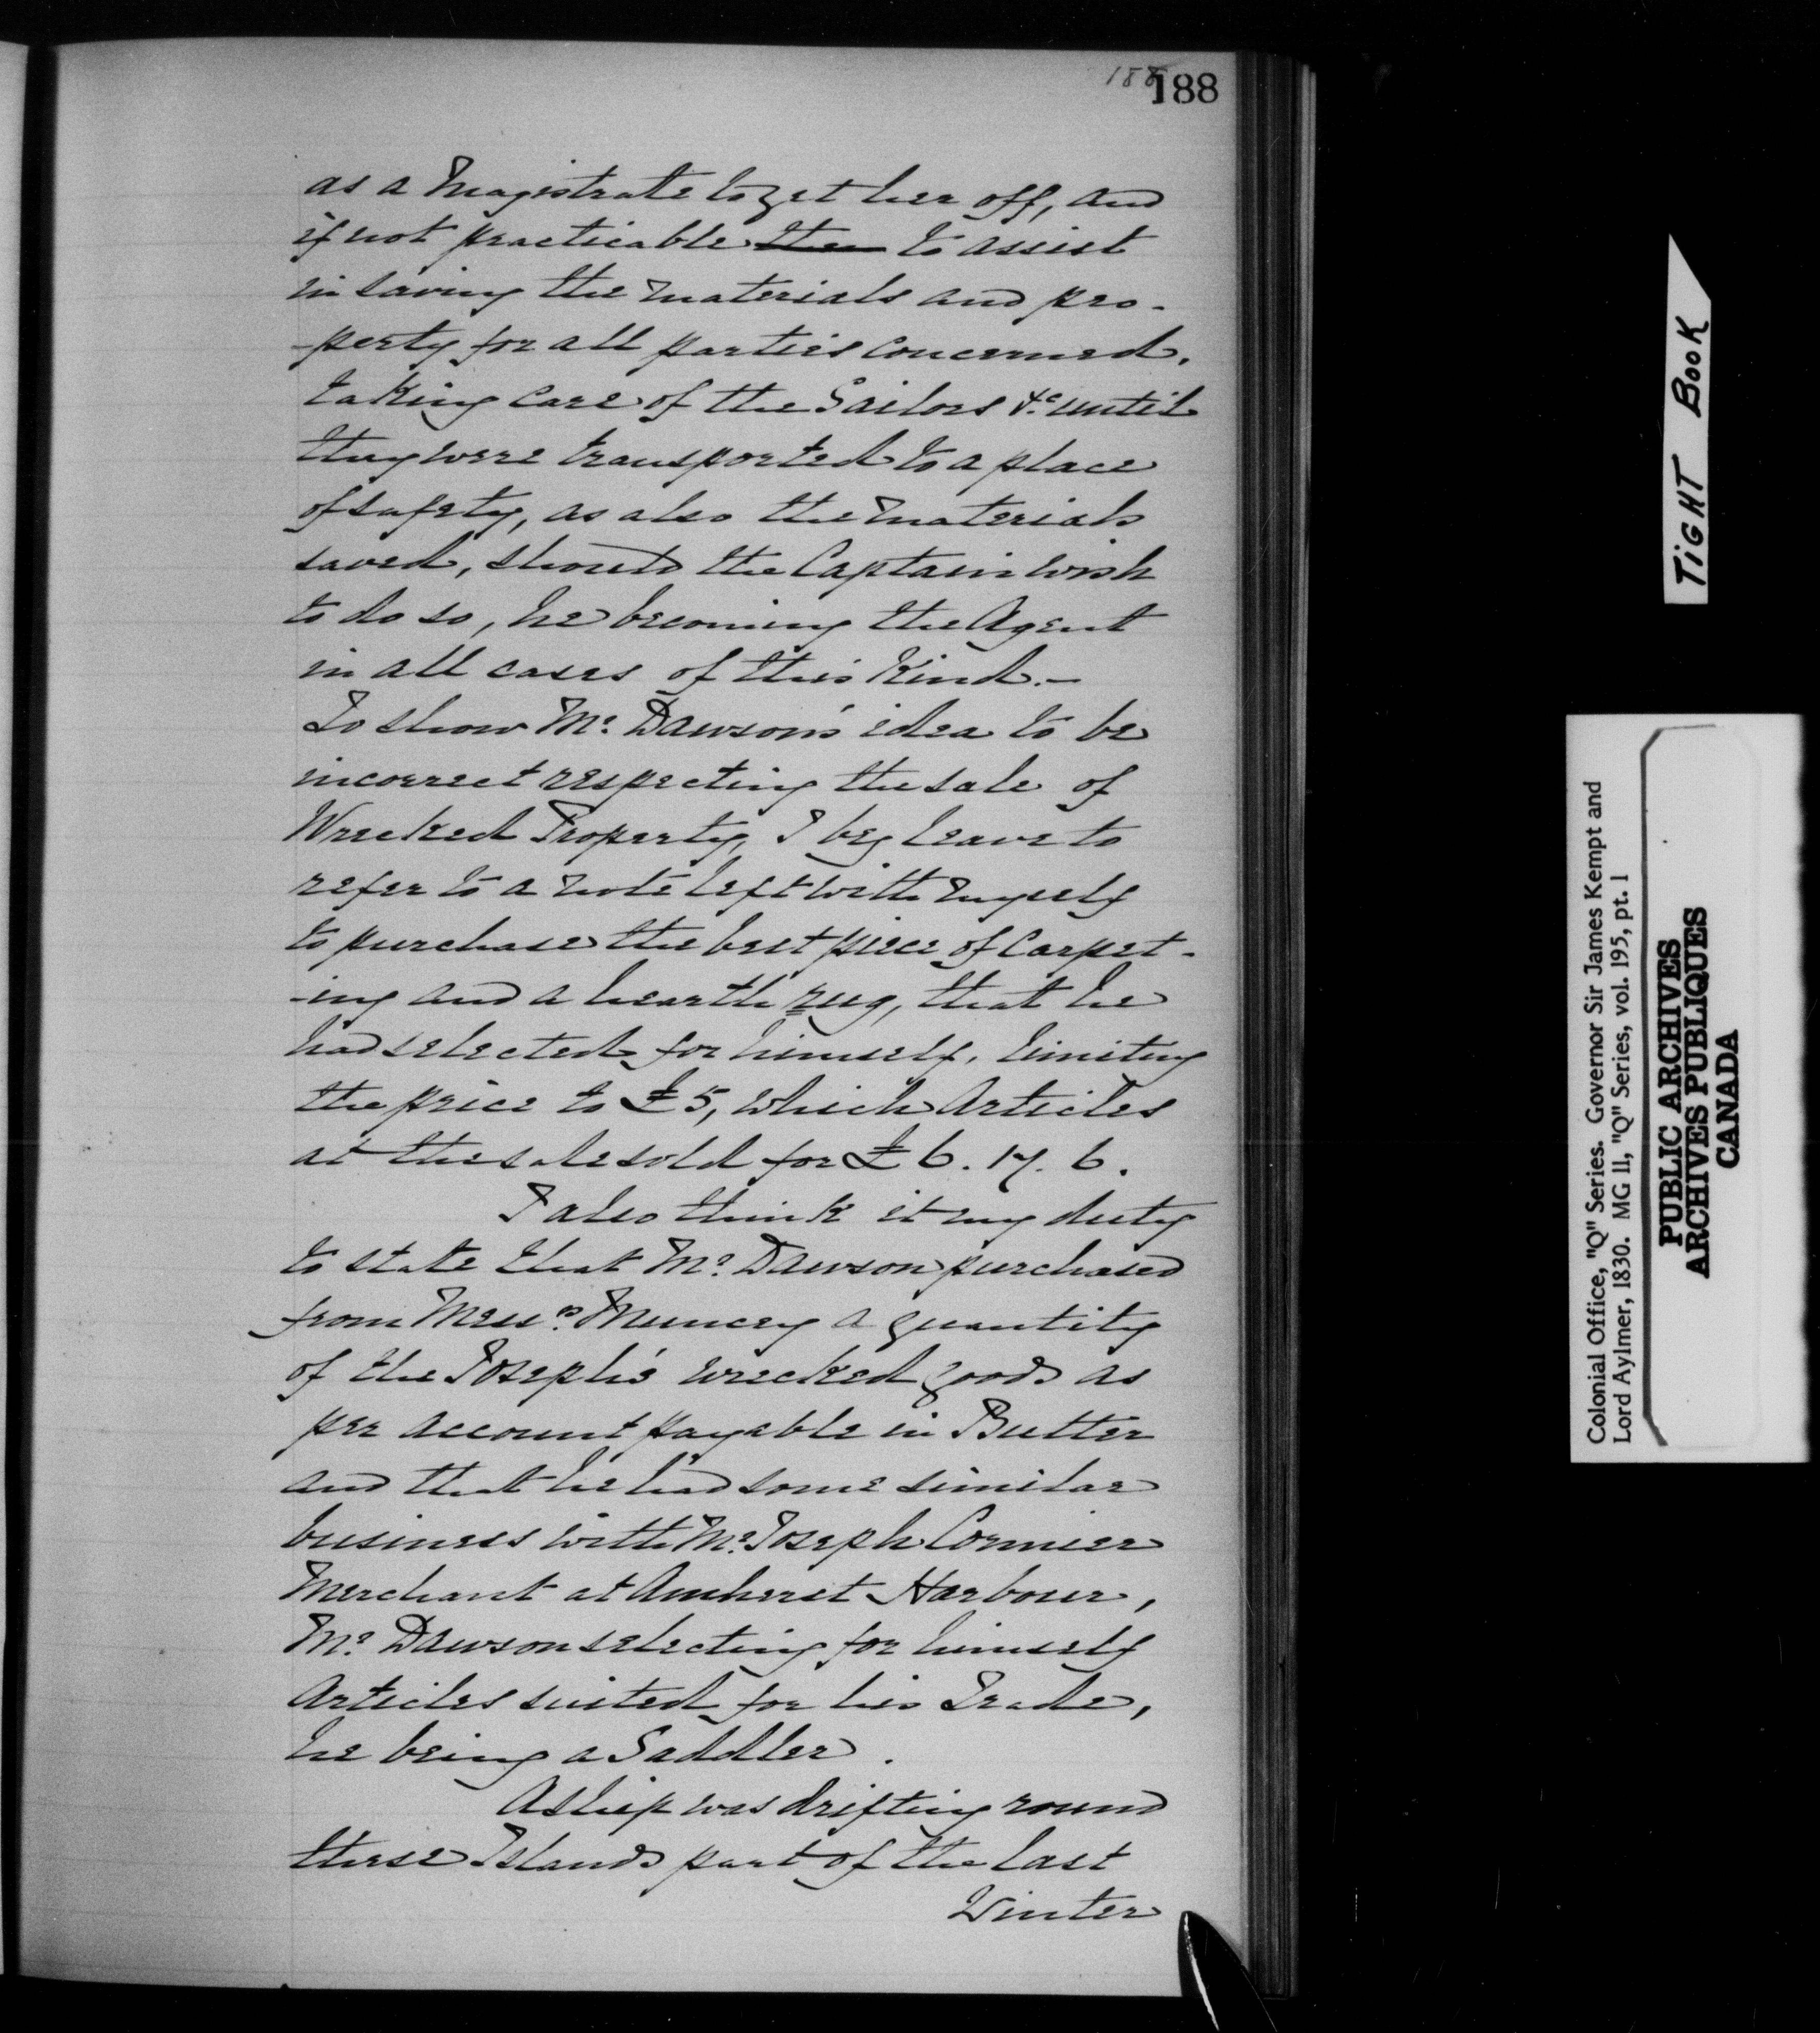 188
188
as a Magistrate to get her off, and
if not practicable then to assist
in saving the materials and pro-
-perty for all parties concerned,
taking care of the Sailors &c. until
they were transported to a place
of safety, as also the materials
saved, should the Captain wish
to do so, he becoming the Agent
in all cases of this kind.—
To show Mr. Dawson's idea to be
incorrect respecting the sale of
Wrecked Property, I beg leave to
refer to a note left with myself
to purchase the best piece of Carpet-
-ing and a hearth rug, that he
had selected for himself, limiting
the price to £5, which Articles
at the sale sold for £6.17.6.
I also think it my duty
to state that Mr. Dawson purchased
from Messrs. Muncey a quantity
of the Joseph's wrecked goods as
per account payable in Butter
and that he had some similar
business with Mr. Joseph Cormier
Merchant at Amherst Harbour,
Mr. Dawson selecting for himself
Articles suited for his Trade,
he being a Saddler.
A ship was drifting round
these Islands part of the last
Winter
TIGHT BOOK
Colonial Office, "Q" Series. Governor Sir James Kempt and
Lord Aylmer, 1830. MG 11, "Q" Series, vol. 195, pt. 1
PUBLIC ARCHIVES
ARCHIVES PUBLIQUES
CANADA